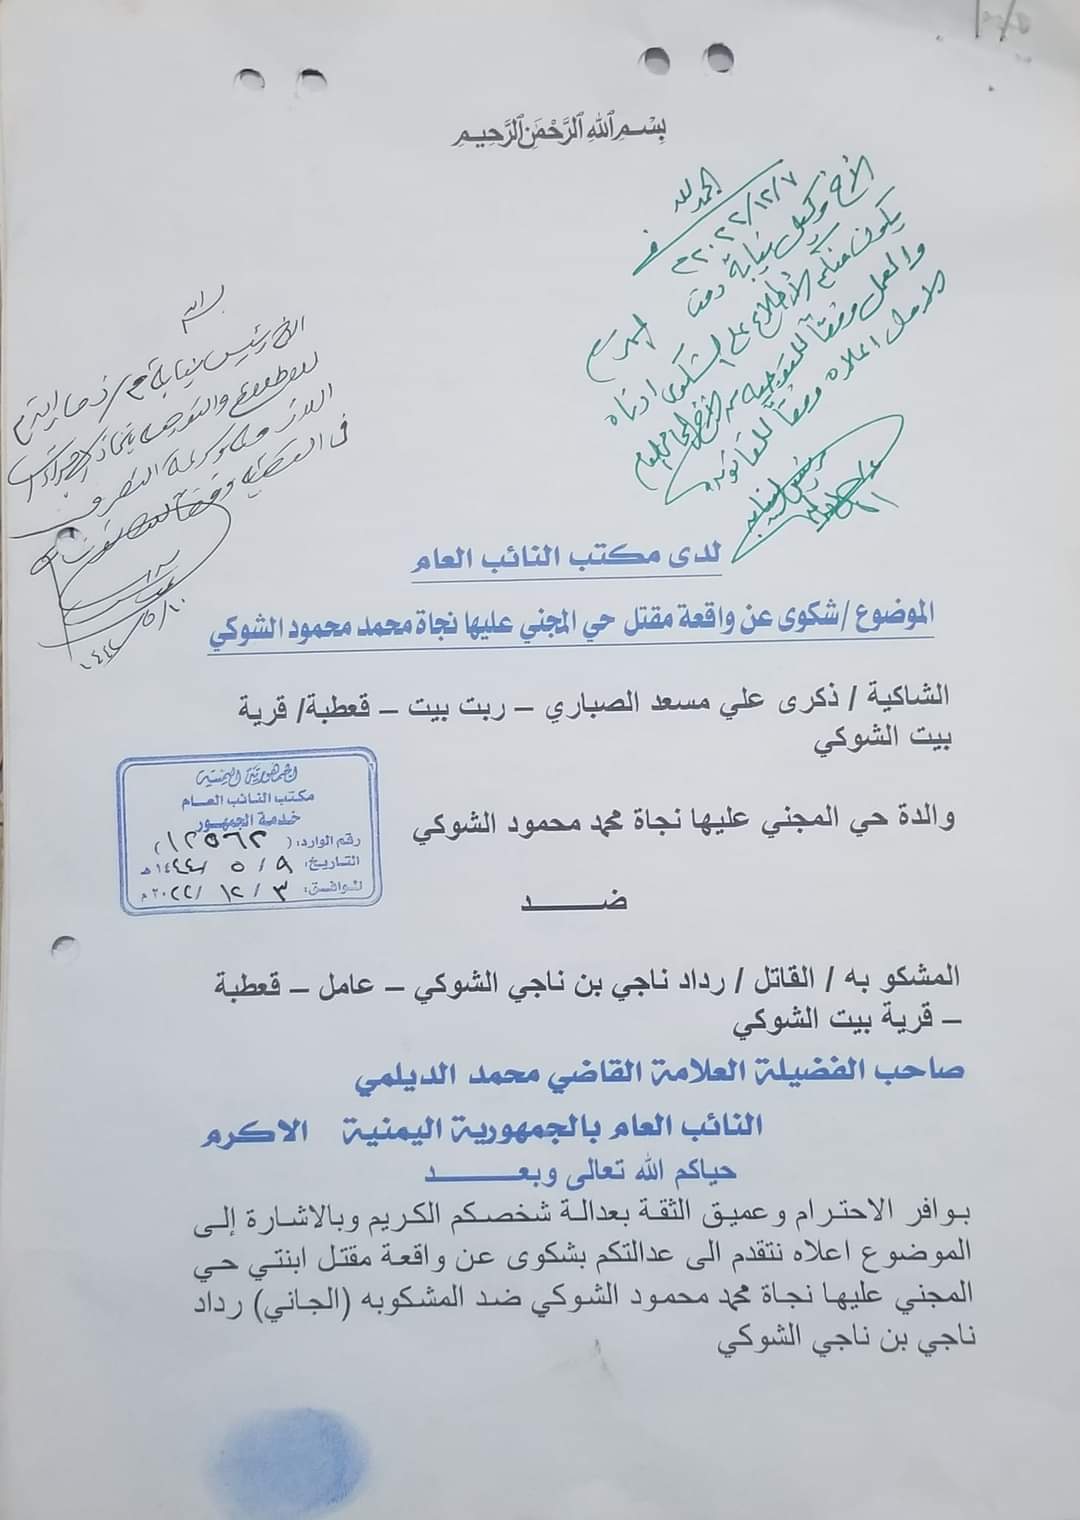 بسم الله الرحمن الرحيم
الحمد لله
٢٠٢٢/١٢/٧م
الأخ وكيل نيابة دمت المحترم
يكون منكم الأطلاع على الشكوى ادناه
والعمل وفقاً للتوجيه من الأخ المحامي العام
الأول اعلاه وفقاً للقانون
بسم الله
الاخ رئيس نيابة م/ذمار المحترم
للاطلاع والتوجيه باتخاذ الاجراءات
اللازمة وسرعة التصرف
في القضية وفقا للقانون
لدى مكتب النائب العام
الموضوع /شكوى عن واقعة مقتل حي المجني عليها نجاة محمد محمود الشوكي
الشاكية / ذكرى علي مسعد الصباري – ربت بيت – قعطبة/ قرية
بيت الشوكي
الجمهورية اليمنية
مكتب النائب العام
خدمة الجمهور
رقم الوارد: (١٢٥٦٢)
التاريخ: ٩ / ٥ / ١٤٤٤هـ
الموافق: ٣ / ١٢ / ٢٠٢٢م
والدة حي المجني عليها نجاة محمد محمود الشوكي
ضـــــــد
المشكو به / القاتل / رداد ناجي بن ناجي الشوكي – عامل – قعطبة
– قرية بيت الشوكي
صاحب الفضيلة العلامة القاضي محمد الديلمي
النائب العام بالجمهورية اليمنية الاكرم
حياكم الله تعالى وبعــــــــد
بوافر الاحترام وعميق الثقة بعدالة شخصكم الكريم وبالاشارة إلى
الموضوع اعلاه نتقدم الى عدالتكم بشكوى عن واقعة مقتل ابنتي حي
المجني عليها نجاة محمد محمود الشوكي ضد المشكوبه (الجاني) رداد
ناجي بن ناجي الشوكي